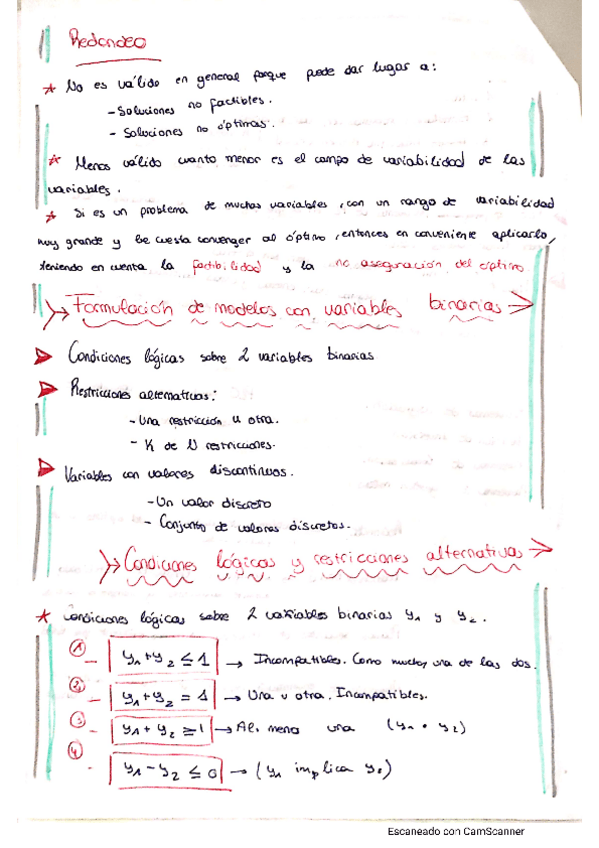 Redondeo
* No es válido en general porque puede dar lugar a:
- Soluciones no factibles.
- Soluciones no óptimas.
* Menos válido cuanto menor es el campo de variabilidad de las
variables.
* Si es un problema de muchas variables, con un rango de variabilidad
muy grande y le cuesta converger al óptimo, entonces en conveniente aplicarlo,
teniendo en cuenta la factibilidad y la no aseguración del óptimo
Formulación de modelos con variables binarias
Condiciones lógicas sobre 2 variables binarias
Restricciones alternativas:
- Una restricción u otra.
- K de N restricciones.
Variables con valores discontinuos.
- Un valor discreto
- Conjunto de valores discretos.
Condiciones lógicas y restricciones alternativas
* Condiciones lógicas sobre 2 variables binarias y1 y y2.
① - y1 + y2 ≤ 1 → Incompatibles. Como mucho, una de las dos.
② - y1 + y2 = 1 → Una u otra. Incompatibles.
③ - y1 + y2 ≥ 1 → Al menos una (y1 o y2)
④ - y1 - y2 ≤ 0 → (y1 implica y2)
Escaneado con CamScanner